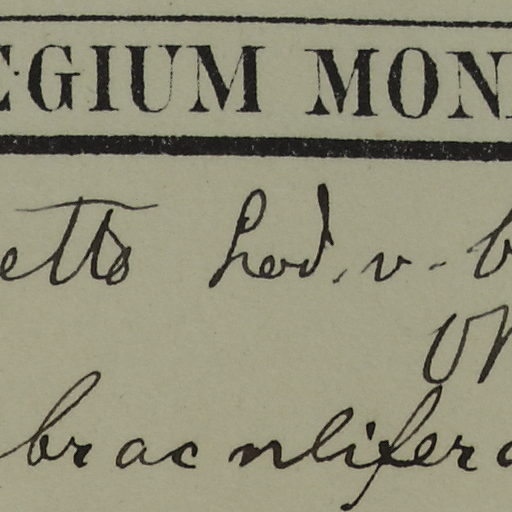 EGIUM MON
etts hod. v. b
bracnlifera